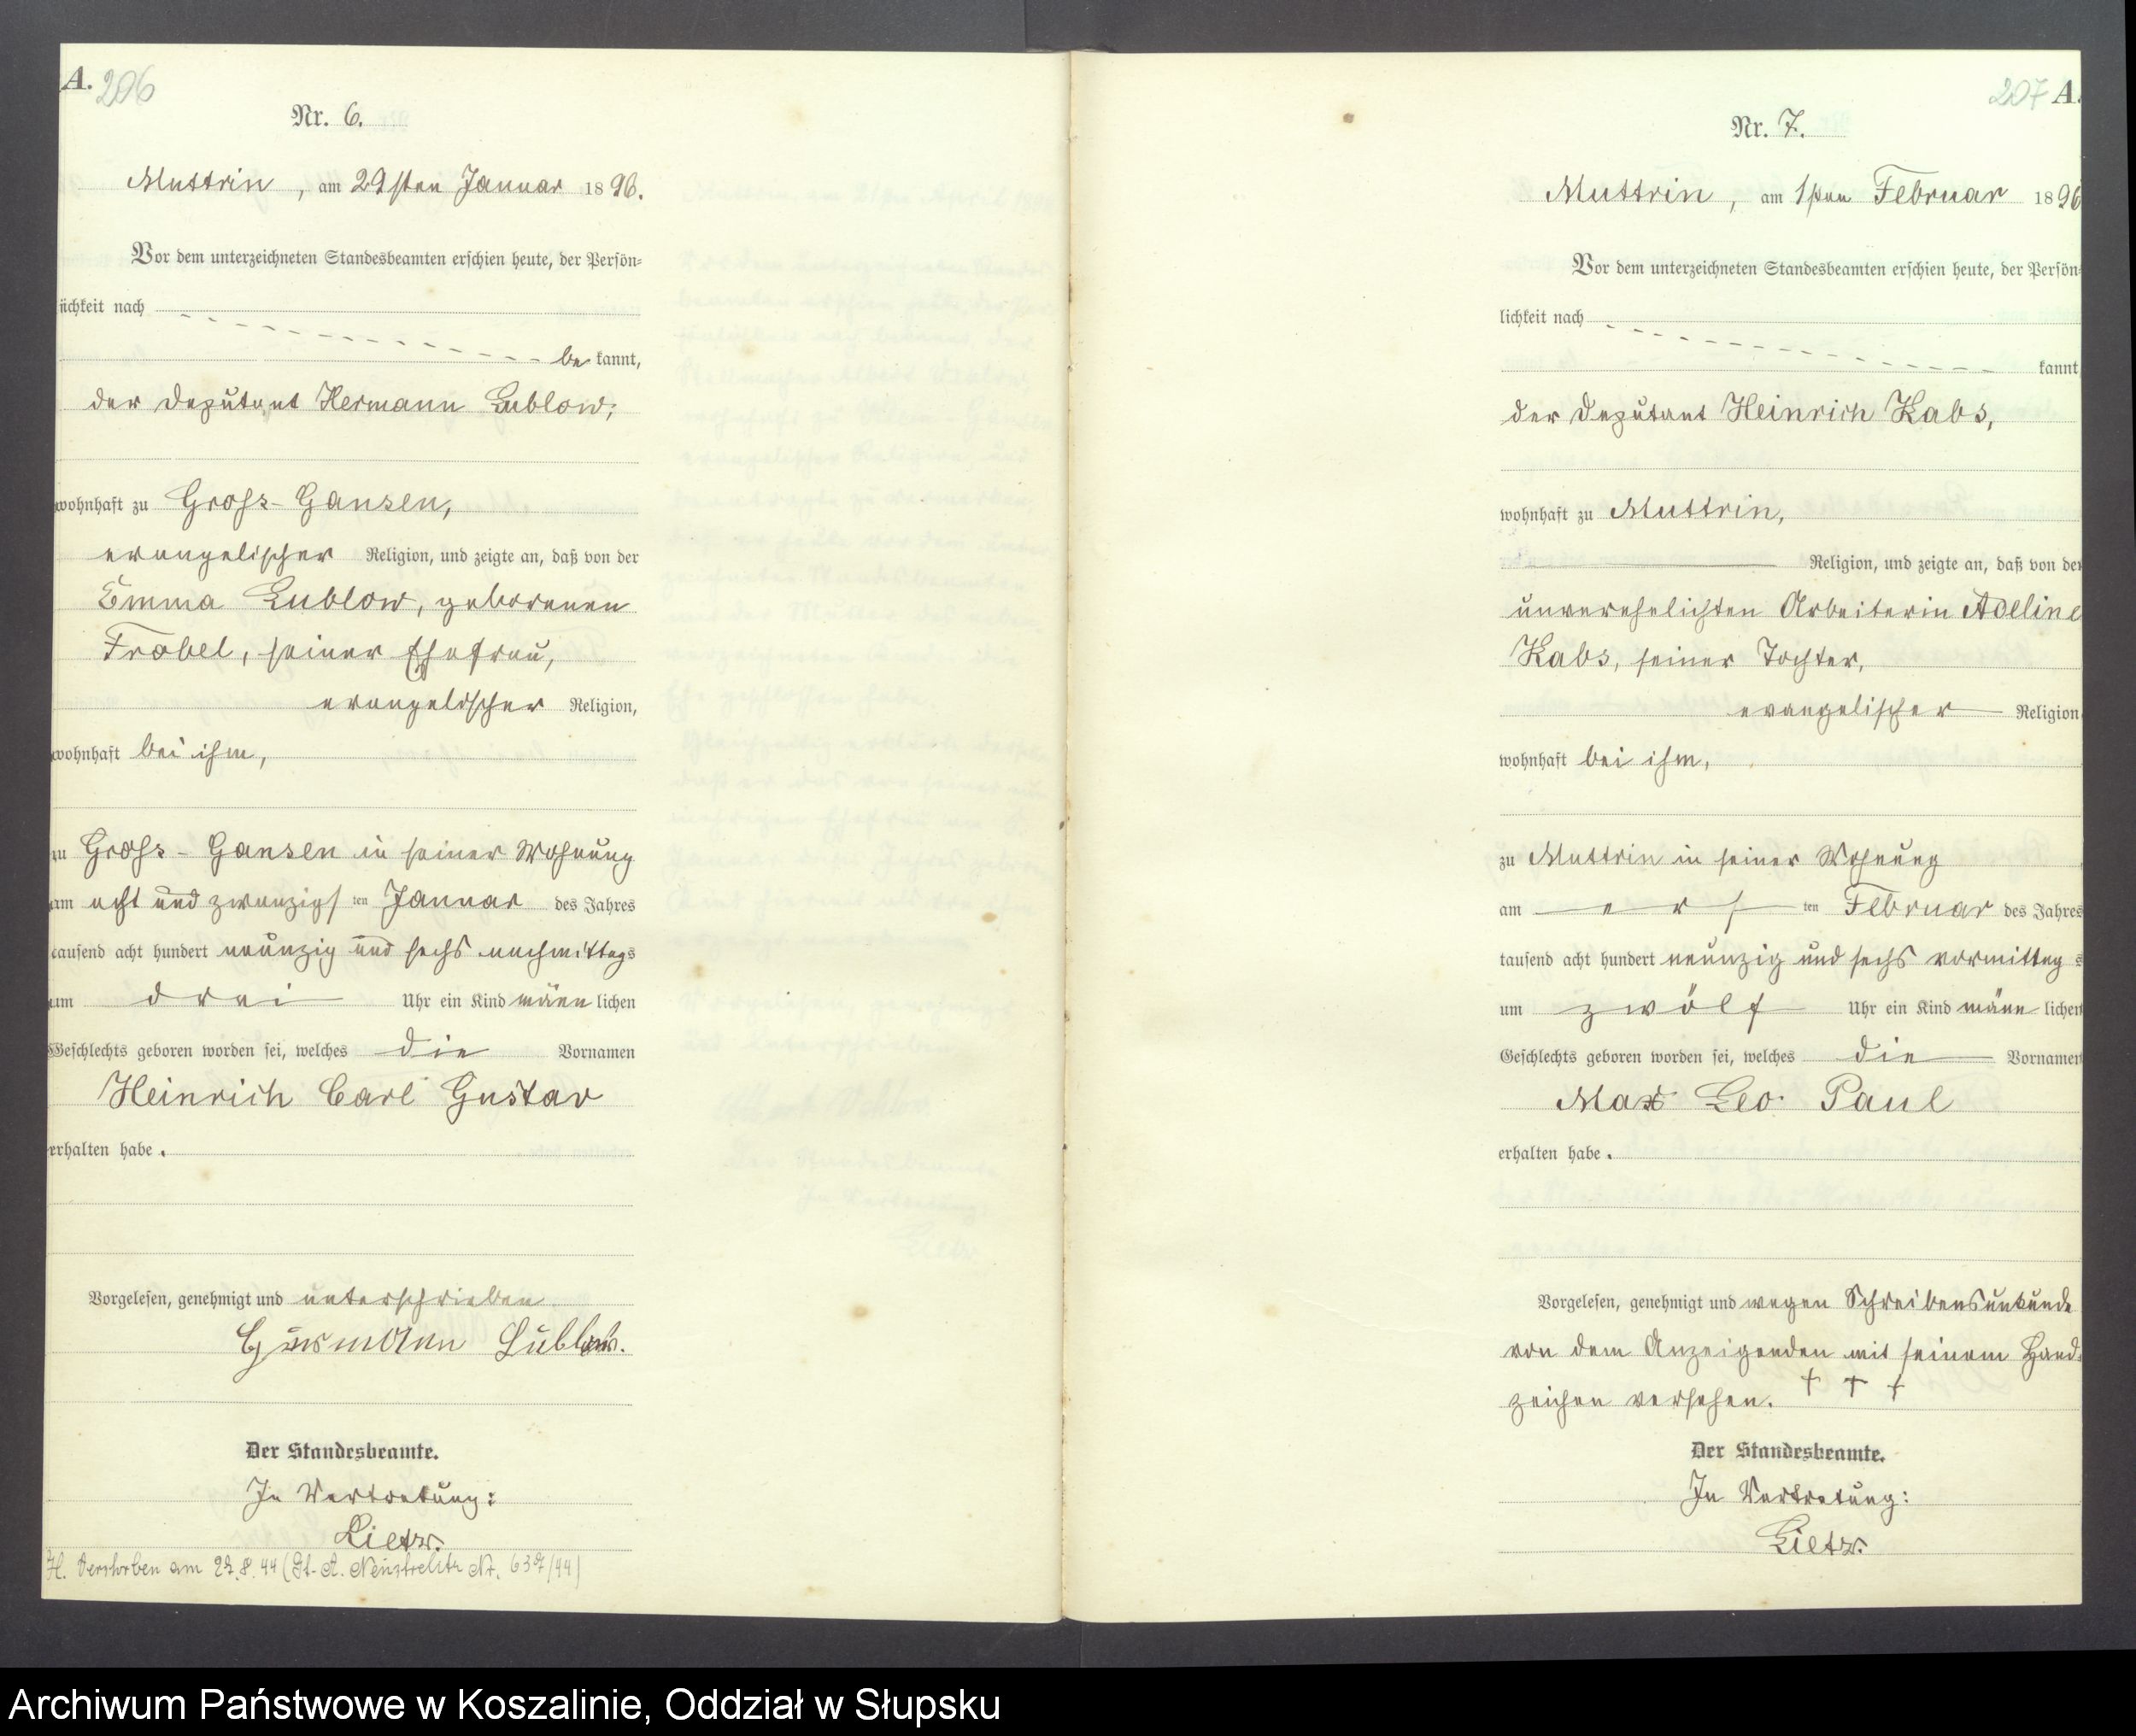 A. 206
Nr. 6.
Muttrin, am 29sten Januar 1896.
Vor dem unterzeichneten Standesbeamten erschien heute, der Persön-
lichkeit nach
be kannt,
der Deputant Hermann Lublow,
wohnhaft zu Gross-Gansen,
evangelischer Religion, und zeigte an, daß von der
Emma Lublow, geborenen
Frobel, seiner Ehefrau,
evangelischer Religion,
wohnhaft bei ihm,
zu Gross-Gansen in seiner Wohnung
am acht und zwanzigsten Januar des Jahres
tausend acht hundert neunzig und sechs nachmittags
um drei Uhr ein Kind männlichen
Geschlechts geboren worden sei, welches die Vornamen
Heinrich Carl Gustav
erhalten habe.
Vorgelesen, genehmigt und unterschrieben
Hermann Lublow.
Der Standesbeamte.
In Vertretung:
Lietz.
H. Verstorben am 27.8.44 (St. A. Neustrelitz Nr. 637/44)
207 A.
Nr. 7.
Muttrin, am 1sten Februar 1896
Vor dem unterzeichneten Standesbeamten erschien heute, der Persön-
lichkeit nach
kannt
der Deputant Heinrich Kabs,
wohnhaft zu Muttrin,
Religion, und zeigte an, daß von der
unverehelichten Arbeiterin Adeline
Kabs, seiner Tochter,
evangelischer Religion
wohnhaft bei ihm,
zu Muttrin in seiner Wohnung
am ersten Februar des Jahres
tausend acht hundert neunzig und sechs vormittags
um zwölf Uhr ein Kind männlichen
Geschlechts geboren worden sei, welches die Vornamen
Max Leo Paul
erhalten habe.
Vorgelesen, genehmigt und wegen Schreibensunkunde
von dem Anzeigenden mit seinem Hand-
zeichen versehen. † † †
Der Standesbeamte.
In Vertretung:
Lietz.
Archiwum Państwowe w Koszalinie, Oddział w Słupsku